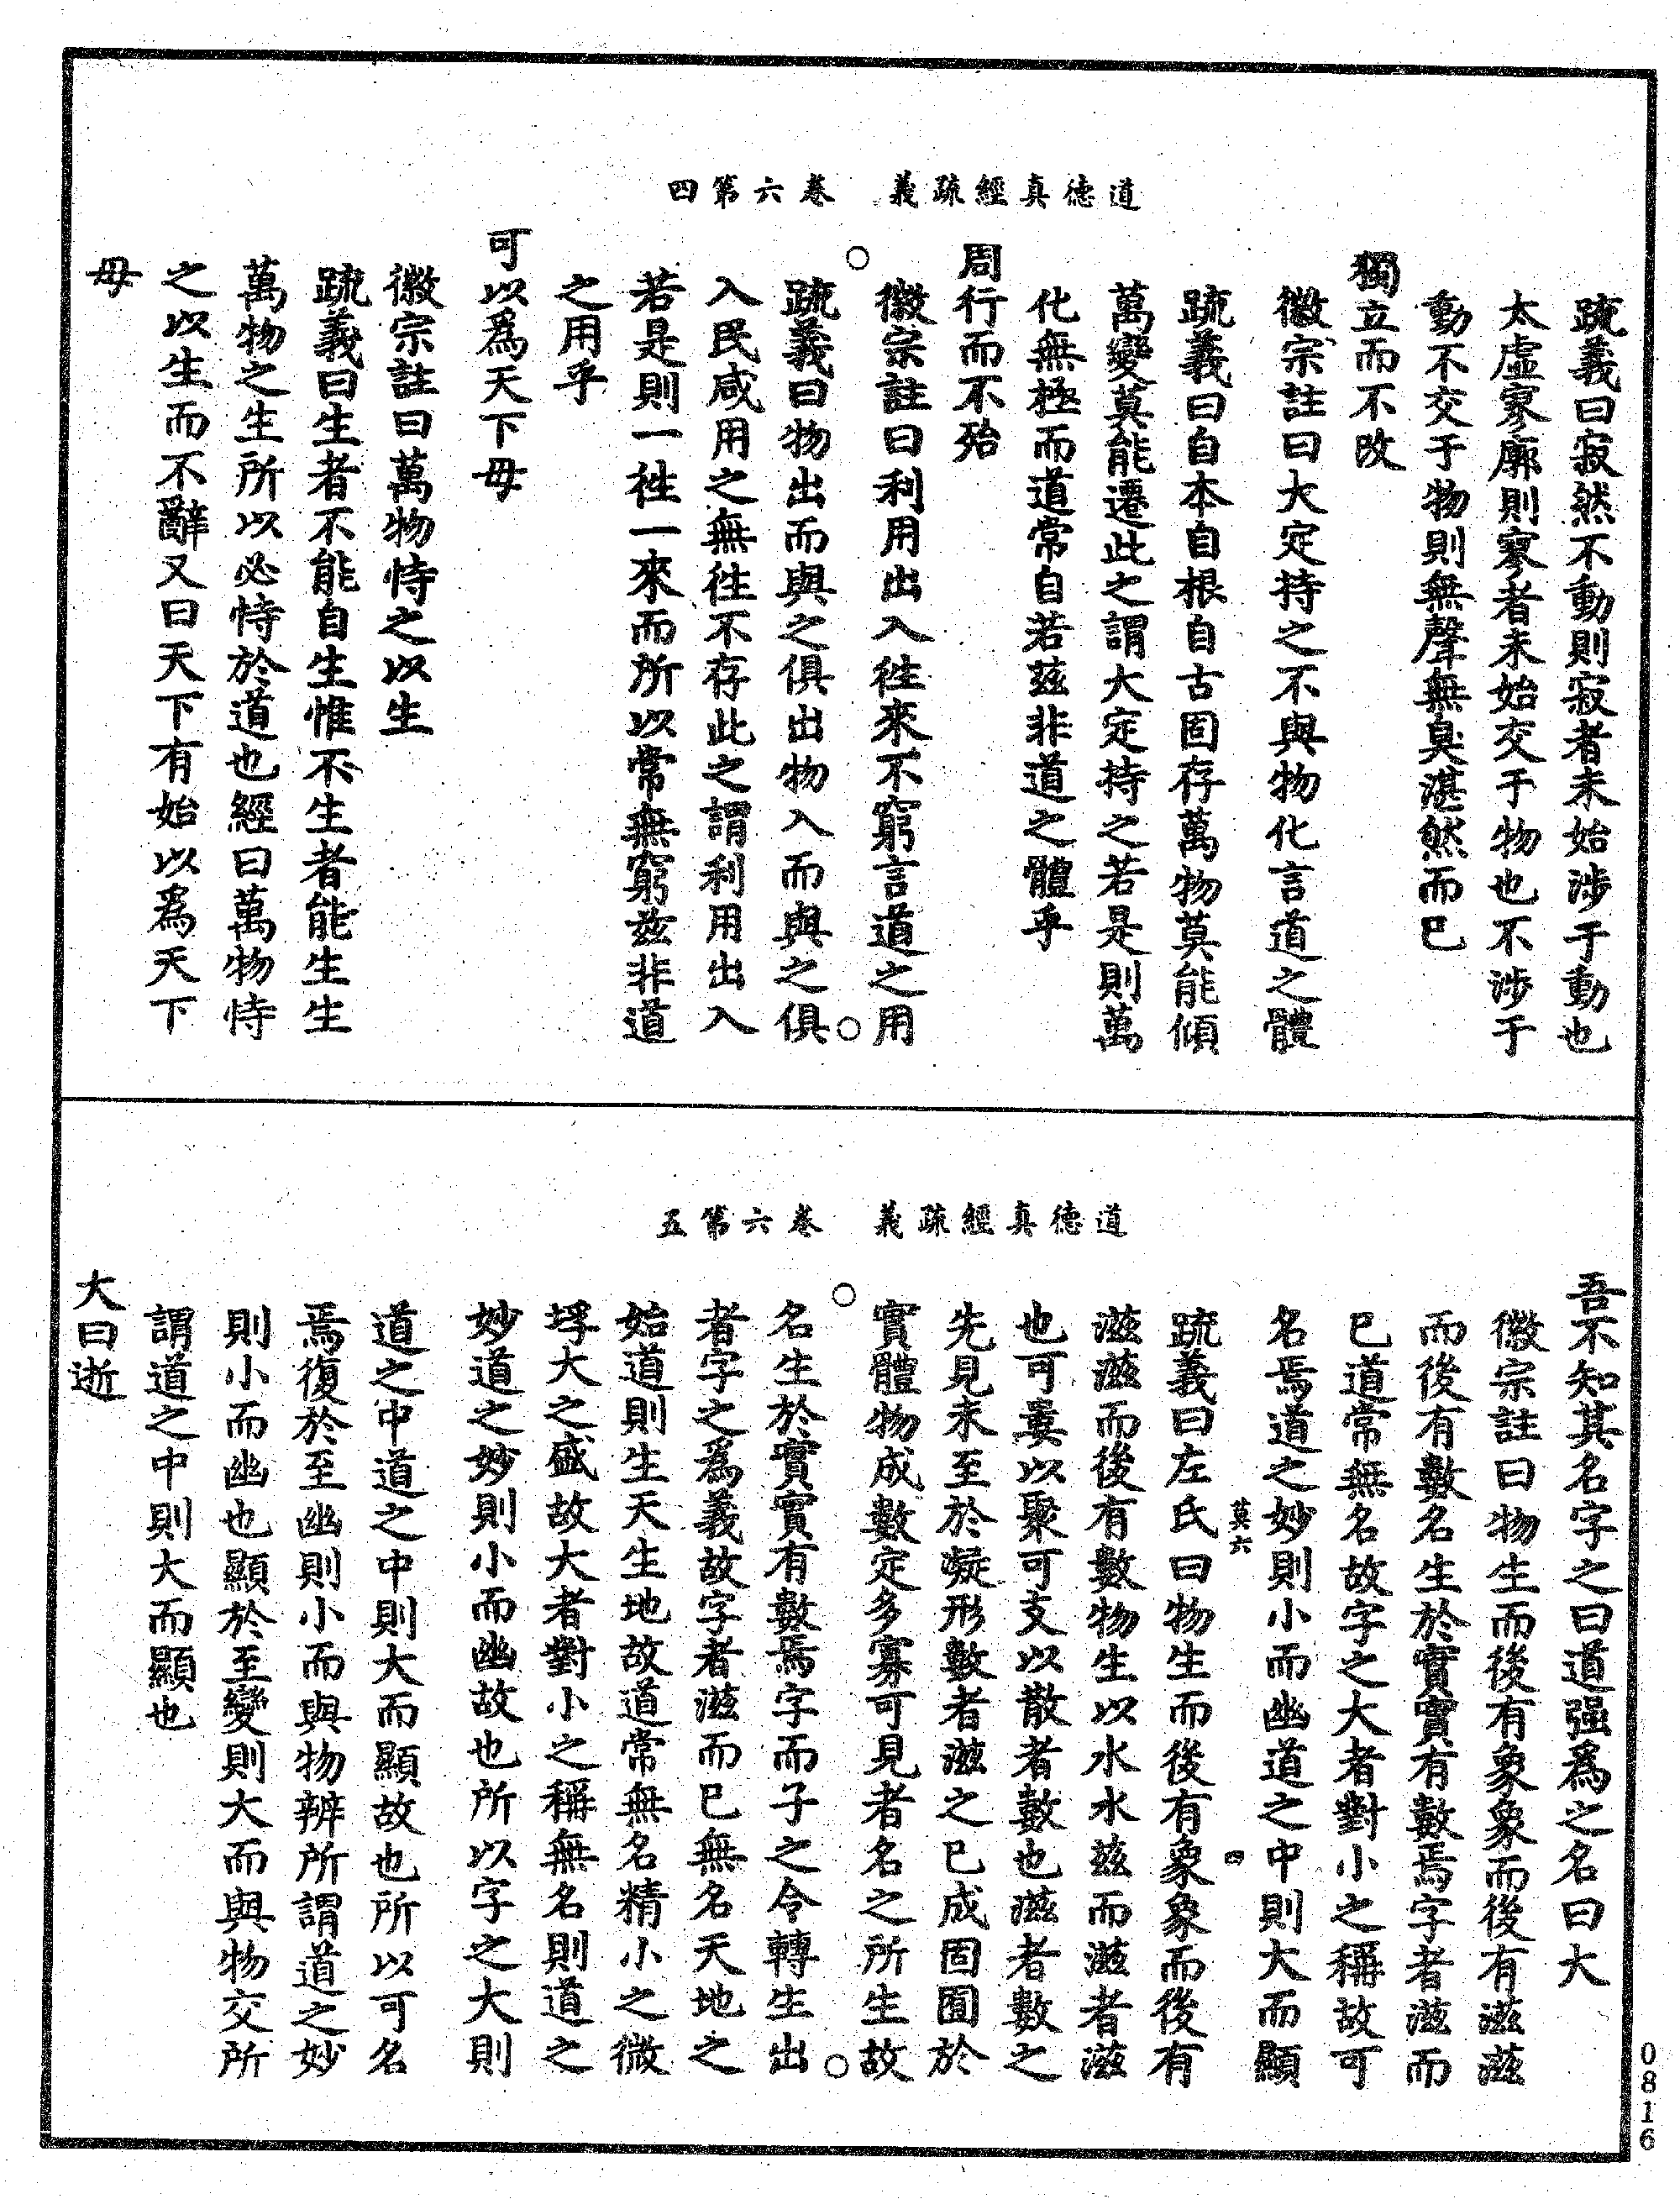 道德真經疏義　卷六第四
疏義曰寂然不動則寂者未始涉于動也
太虛寥廓則寥者未始交于物也不涉于
動不交于物則無聲無臭湛然而已
獨立而不改
徽宗註曰大定持之不與物化言道之體
疏義曰自本自根自古固存萬物莫能傾
萬變莫能遷此之謂大定持之若是則萬
化無極而道常自若茲非道之體乎
周行而不殆
徽宗註曰利用出入徃來不窮言道之用
疏義曰物出而與之俱出物入而與之俱
入民咸用之無徃不存此之謂利用出入
若是則一徃一來而所以常無窮茲非道
之用乎
可以爲天下母
徽宗註曰萬物恃之以生
疏義曰生者不能自生惟不生者能生生
萬物之生所以必恃於道也經曰萬物恃
之以生而不辭又曰天下有始以爲天下
母
道德真經疏義　卷六第五
吾不知其名字之曰道强爲之名曰大
徽宗註曰物生而後有象象而後有滋滋
而後有數名生於實實有數焉字者滋而
已道常無名故字之大者對小之稱故可
名焉道之妙則小而幽道之中則大而顯
莫六
四
疏義曰左氏曰物生而後有象象而後有
滋滋而後有數物生以水水茲而滋者滋
也可㠯以聚可支以散者數也滋者數之
先見未至於凝形數者滋之已成固囿於
實體物成數定多寡可見者名之所生故
名生於實實有數焉字而子之令轉生出
者字之爲義故字者滋而已無名天地之
始道則生天生地故道常無名精小之微
垺大之盛故大者對小之稱無名則道之
妙道之妙則小而幽故也所以字之大則
道之中道之中則大而顯故也所以可名
焉復於至幽則小而與物辨所謂道之妙
則小而幽也顯於至變則大而與物交所
謂道之中則大而顯也
大曰逝
0816